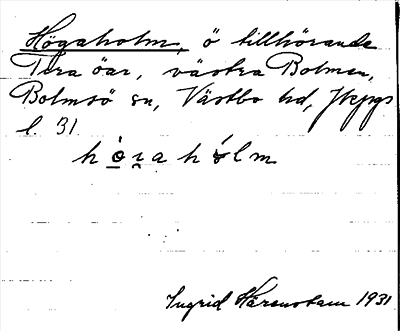 Högaholm, ö tillhörande
Tira öar, västra Bolmen,
Bolmsö sn, Västbo hd,
l. 31.
Ingrid Härenstam 1931